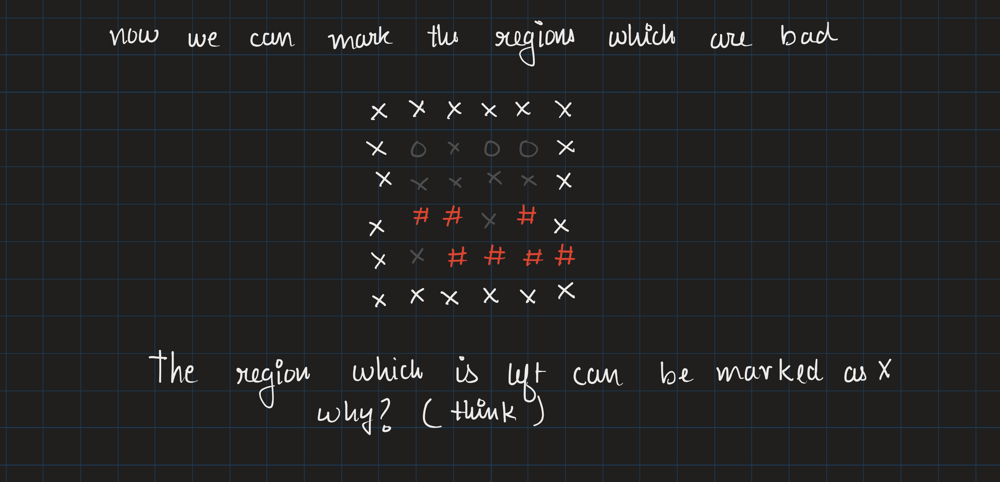 now we can mark the regions which are bad
x x x x x x
x O x O O x
x x x x x x
x # # x # x
x x # # # #
x x x x x x
The region which is left can be marked as X
why? (think)